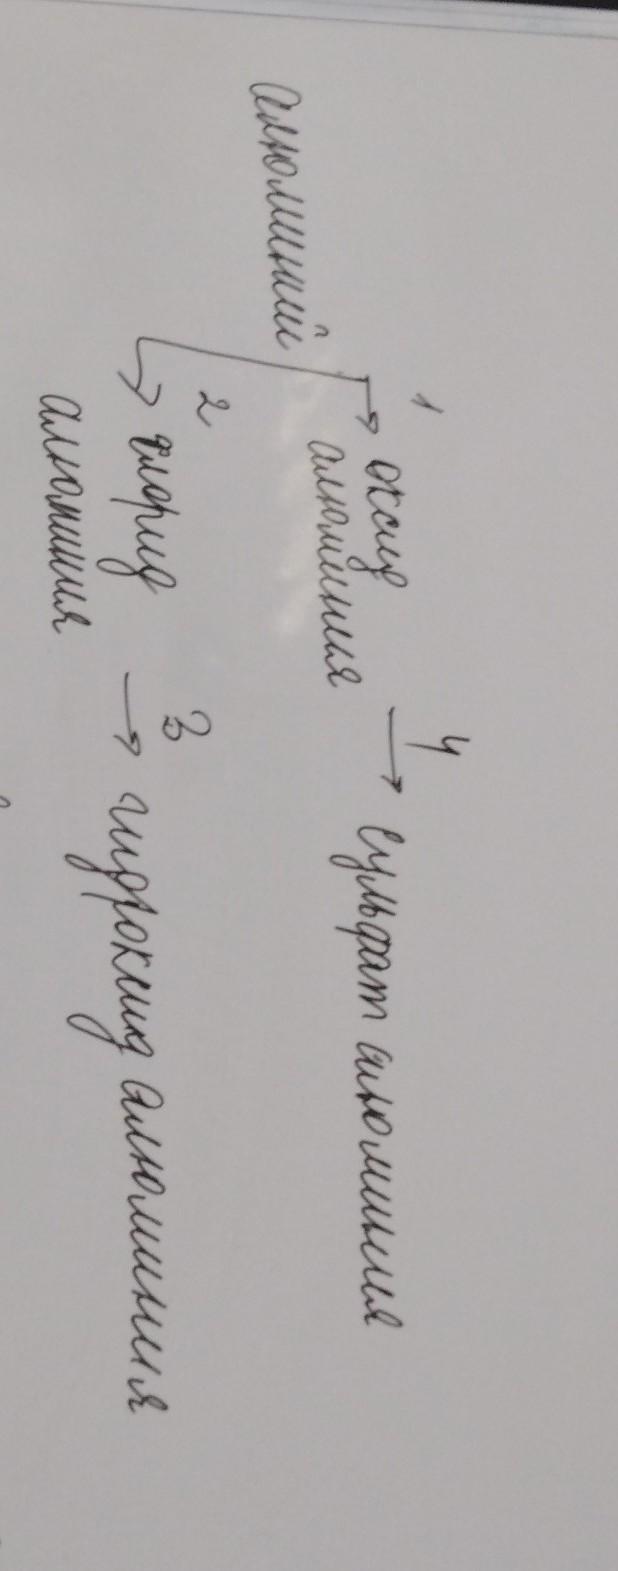 1
4
алюминий → оксид → сульфат алюминия
алюминия
2
3
→ хлорид → гидроксид алюминия
алюминия